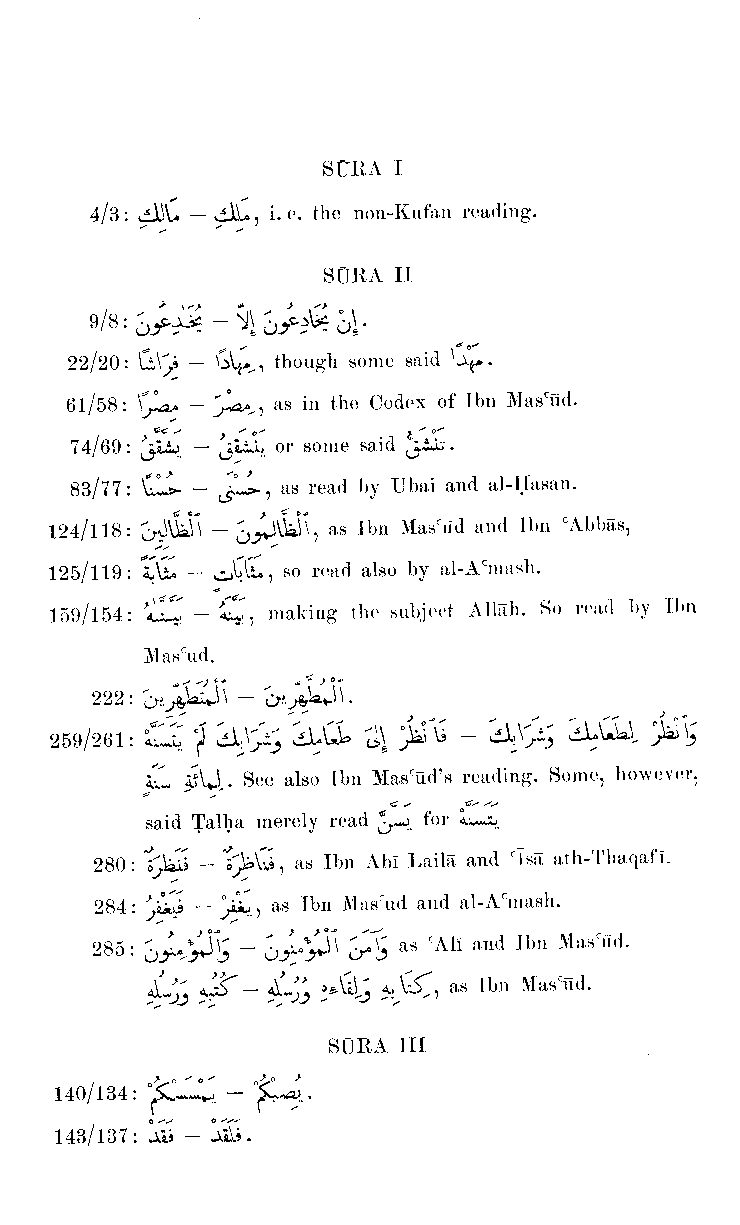 SŪRA I
4/3: مَالِكِ — مَلِكِ, i. e. the non-Kufan reading.
SŪRA II
9/8: يُخَٰدِعُونَ — إِنْ يُخَادِعُونَ إِلَّا.
22/20: فِرَاشًا — مِهَادًا, though some said مَهْدًا.
61/58: مِصْرًا — مِصْرَ, as in the Codex of Ibn Masʿūd.
74/69: يَشَّقَّقُ — يَنْشَقِقُ or some said تَنْشَقُّ.
83/77: حُسْنًا — حُسْنَى, as read by Ubai and al-Ḥasan.
124/118: ٱلظَّالِمِينَ — ٱلظَّالِمُونَ, as Ibn Masʿūd and Ibn ʿAbbās,
125/119: مَثَابَةً — مَثَابَاتٍ, so read also by al-Aʿmash.
159/154: بَيَّنَّٰهُ — بَيَّنَهُ, making the subject Allāh. So read by Ibn
Masʿud.
222: ٱلْمُتَطَهِّرِينَ — ٱلْمُطَّهِّرِينَ.
259/261: فَٱنْظُرْ إِلَىٰ طَعَامِكَ وَشَرَابِكَ لَمْ يَتَسَنَّهْ — وَٱنْظُرْ لِطَعَامِكَ وَشَرَابِكَ
لِمِائَةِ سَنَةٍ. See also Ibn Masʿūd's reading. Some, however,
said Ṭalḥa merely read يَتَسَنَّ for يَتَسَنَّهْ
280: فَنَظِرَةٌ — فَنَاظِرَةٌ, as Ibn Abī Lailā and ʿĪsā ath-Thaqafī.
284: فَيَغْفِرُ — يَغْفِرْ, as Ibn Masʿud and al-Aʿmash.
285: وَٱلْمُؤْمِنُونَ — وَآمَنَ ٱلْمُؤْمِنُونَ as ʿAlī and Ibn Masʿūd.
كُتُبِهِ وَرُسُلِهِ — كِتَابِهِ وَلِقَاءِهِ وَرُسُلِهِ, as Ibn Masʿūd.
SŪRA III
140/134: يَمْسَسْكُمْ — يُصِبْكُمْ.
143/137: فَقَدْ — فَلَقَدْ.